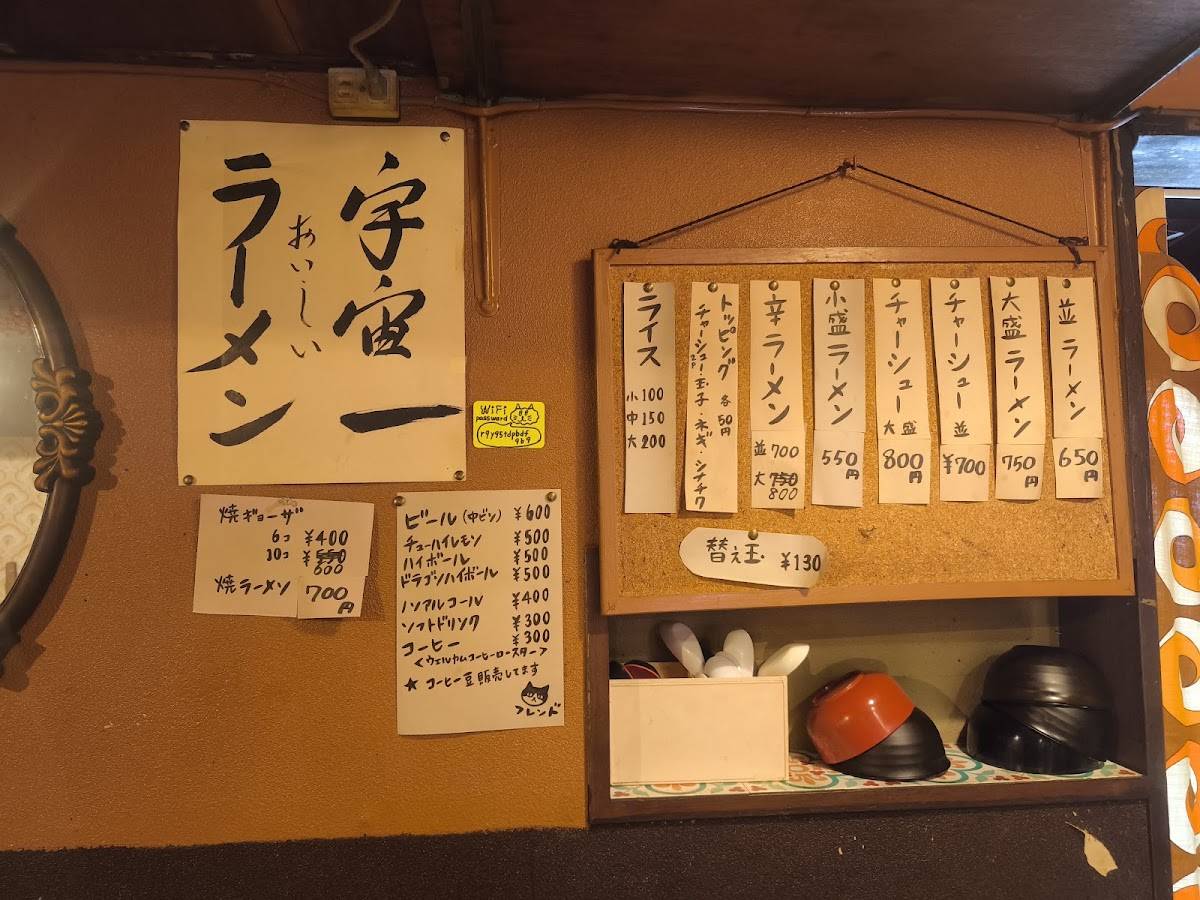 宇宙一
おいしい
ラーメン
WiFi
password
r9y95tdpbdf
9b9
並ラーメン
650円
大盛ラーメン
750円
チャーシュー並
¥700
チャーシュー大盛
800円
小盛ラーメン
550円
辛ラーメン
並700
大750
800
トッピング各50円
チャーシュー2P・玉子・ネギ・シナチク
ライス
小100
中150
大200
替え玉 ¥130
焼ギョーザ
6コ ¥400
10コ ¥550
600
焼ラーメン 700円
ビール(中ビン) ¥600
チューハイレモン ¥500
ハイボール ¥500
ドラゴンハイボール ¥500
ノンアルコール ¥400
ソフトドリンク ¥300
コーヒー ¥300
<ウェルカムコーヒーロースター>
★ コーヒー豆販売してます
フレンド